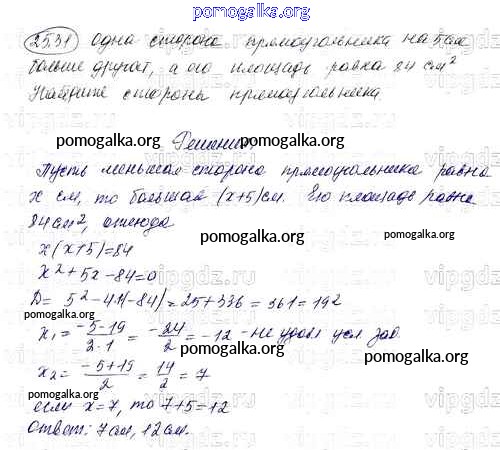 pomogalka.org
25.31 Одна сторона прямоугольника на 5 см
больше другой, а его площадь равна 84 см²
Найдите стороны прямоугольника.
pomogalka.org pomogalka.org
Решение
Пусть меньшая сторона прямоугольника равна
x см, то большая (x+5) см. Его площадь равна
84 см², отсюда
pomogalka.org
x(x+5)=84
x²+5x-84=0
vipgdz.ru
D= 5²-4·1(-84)=25+336=361=19²
pomogalka.org pomogalka.org
x₁= -5-19/2·1 = -24/2 = -12 - не удовл усл зад
pomogalka.org
x₂= -5+19/2 = 14/2 = 7
pomogalka.org
если x=7, то 7+5=12
Ответ: 7см, 12см.
pomogalka.org